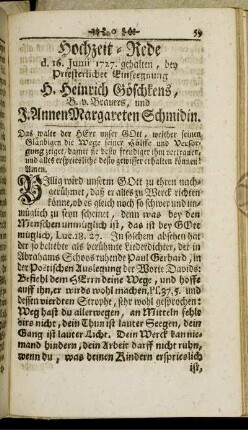 59
Hochzeit-Rede
d. 16. Junii 1727. gehalten, bey
Priesterlicher Einsegnung
H. Heinrich Göschkens,
B. u. Brauers, und
J. Annen Margareten Schmidin.
Das walte der HErr unser GOtt, welcher seinen
Gläubigen die Wege seiner Hülffe und Versor-
gung zeiget, damit sie desto freudiger ihm vertrauen,
und alles ersprießliche desto gewisser erhalten können!
Amen.
Billig wird unserm GOtt zu ehren nach-
gerühmet, daß er alles zu Werck richten
könne, ob es gleich noch so schwer und un-
müglich zu seyn scheinet, denn was bey den
Menschen unmüglich ist, das ist bey GOtt
müglich, Luc. 18. 27. In solchem absehen hat
der so beliebte als berühmte Liederdichter, der in
Abrahams Schoos ruhende Paul Gerhard, in
der Poetischen Auslegung der Worte Davids:
Befiehl dem HErrn deine Wege, und hoffe
auff ihn, er wirds wohl machen, Ps. 37. 5. und
dessen vierdten Strophe, sehr wohl gesprochen:
Weg hast du allerwegen, an Mitteln fehlt
dirs nicht, dein Thun ist lauter Seegen, dein
Gang ist lauter Licht. Dein Werck kan nie-
mand hindern, dein Arbeit darff nicht ruhn,
wenn du, was deinen Kindern ersprieslich
ist,